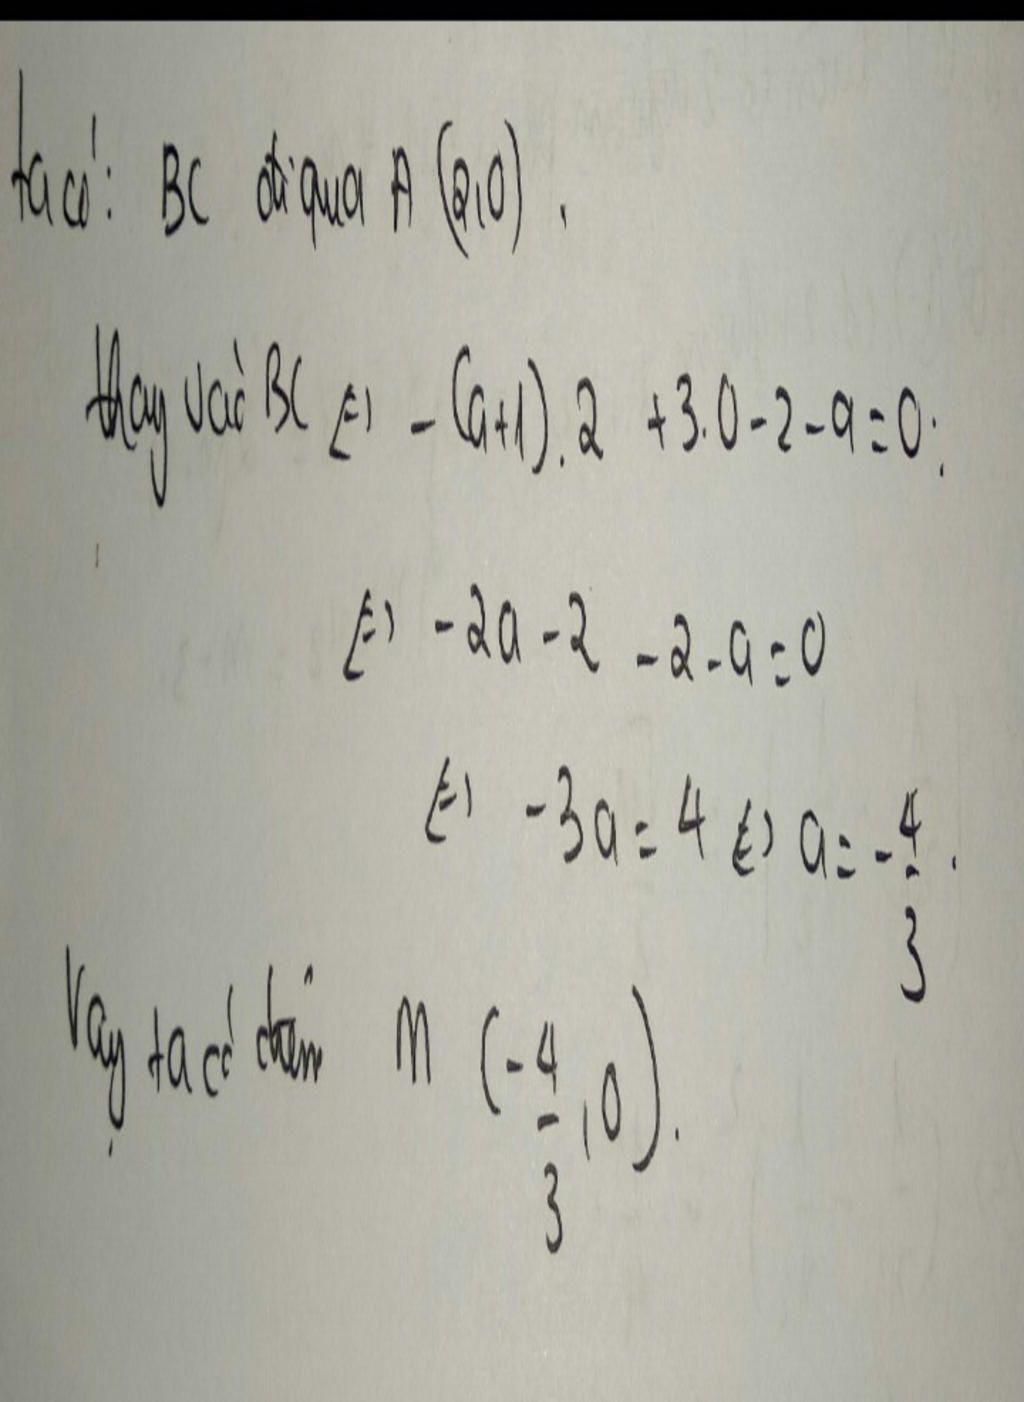 ta có: BC đi qua A (2,0).
thay vào BC <=> -(a+1).2 +3.0-2-a=0;
<=> -2a-2 -2-a=0
<=> -3a=4 <=> a=-4/3.
Vậy ta có điểm M (-4/3,0).